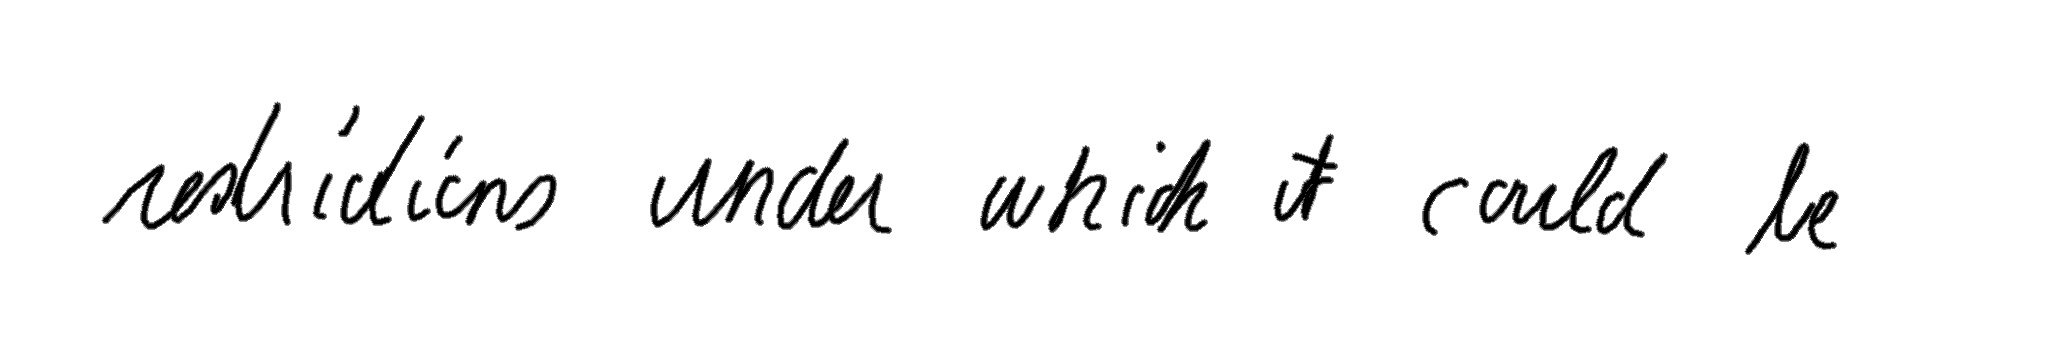 restrictions under which it could be